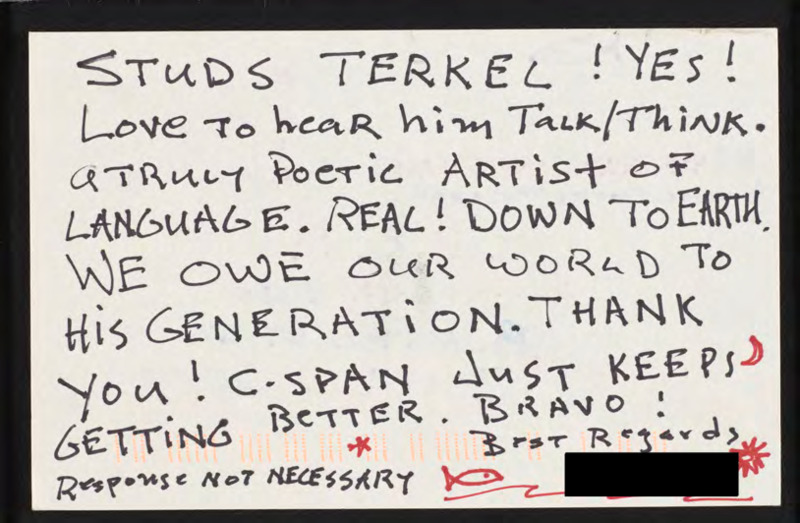 STUDS TERKEL ! YES !
Love To hear him Talk/Think.
a TRULY Poetic ARTist oF
LANGUAGE. REAL! DOWN To EARTH.
WE OWE OUR WORLD To
His GENERATiON. THANK
You! C-SPAN JUST KEEPS
GETTiNG BETTER. BRAVO !
Best Regards
Response NOT NECESSARY